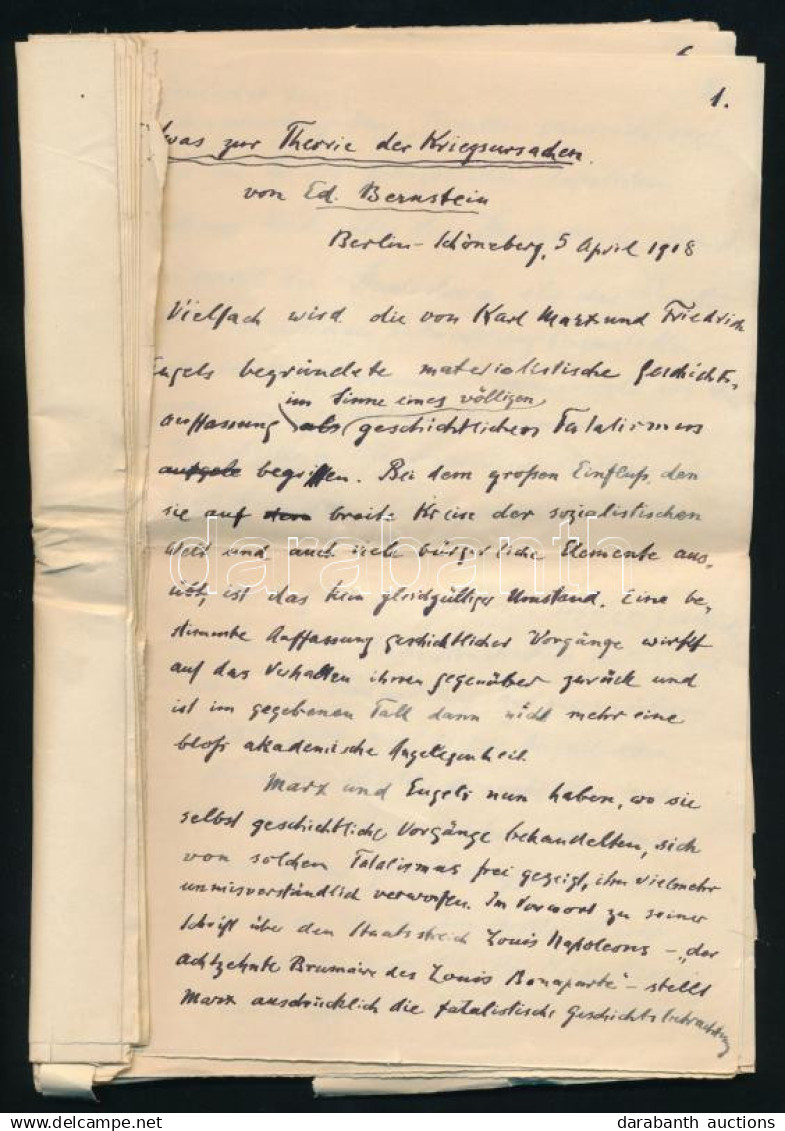 1.
twas zur Theorie der Kriegsursachen.
von Ed. Bernstein
Berlin-Schöneberg, 5 April 1918
Vielfach wird die von Karl Marx und Friedrich
Engels begründete materialistische Geschichts-
im Sinne eines völligen
auffassung als geschichtlichen Fatalismus
aufgefa begriffen. Bei dem großen Einfluß, den
sie auf dem breite Kreise der sozialistischen
Welt und auch viele bürgerliche Elemente aus-
übt, ist das kein gleichgültiger Umstand. Eine be-
stimmte Auffassung geschichtlicher Vorgänge wirkt
auf das Verhalten ihnen gegenüber zurück und
ist im gegebenen Fall dann nicht mehr eine
bloß akademische Angelegenheit.
Marx und Engels nun haben, wo sie
selbst geschichtliche Vorgänge behandelten, sich
von solchem Fatalismus frei gezeigt, ihn vielmehr
unmisverständlich verworfen. Im Vorwort zu seiner
Schrift über den Staatsstreich Louis Napoleons – „der
achtzehnte Brumaire des Louis Bonaparte" – stellt
Marx ausdrücklich die fatalistische Geschichtsbetrachtung
darabanth
darabanth auctions